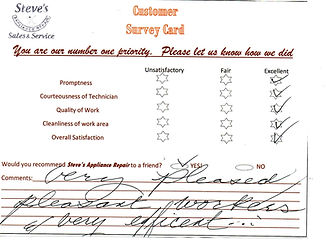 Steve's
Sales & Service
Customer
Survey Card
You are our number one priority. Please let us know how we did
Unsatisfactory Fair Excellent
Promptness
Courteousness of Technician
Quality of Work
Cleanliness of work area
Overall Satisfaction
Would you recommend Steve's Appliance Repair to a friend? YES! NO
Comments: Very Pleased
pleasant workers
& very efficent...